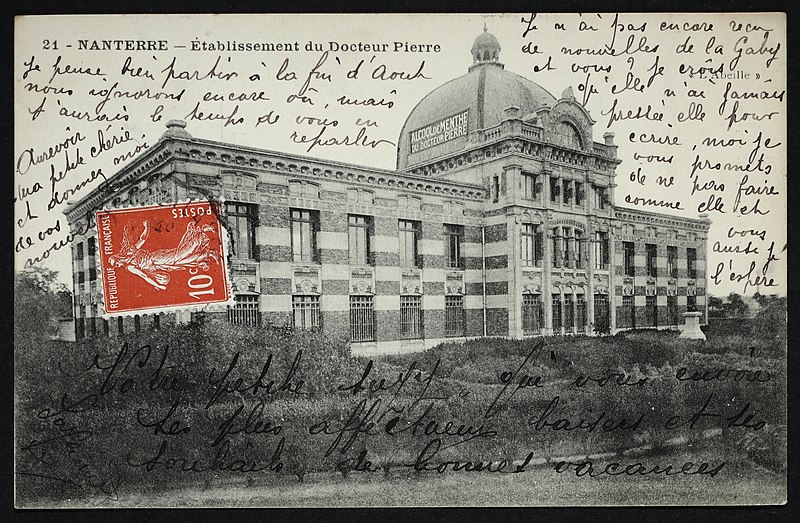 21 - NANTERRE — Établissement du Docteur Pierre
« L'Abeille »
Je pense bien partir à la fin d'Aout
nous ignorons encore où, mais
j'aurais le temps de vous en
reparler
Aurevoir
ma petite chérie
et donnez moi
de vos
nouv
Je n'ai pas encore reçu
de nouvelles de la Gaby
et vous ? je crois
qu'elle n'ai jamais
pressée, elle pour
écrire, moi je
vous promets
de ne pas faire
comme elle et
vous
aussi j'
l'espère
ALCOOL DE MENTHE
DU DOCTEUR PIERRE
POSTES
RÉPUBLIQUE FRANÇAISE
10 c
Votre petite qui vous envoie
ses plus affectueux baisers et ses
souhaits de bonnes vacances